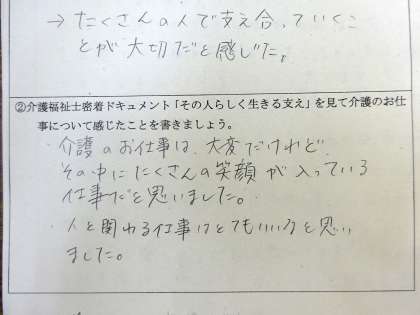 → たくさんの人で支え合っていくこ
とが大切だと感じた。
②介護福祉士密着ドキュメント「その人らしく生きる支え」を見て介護のお仕
事について感じたことを書きましょう。
・介護のお仕事は、大変だけれど、
その中にたくさんの笑顔が入っている
仕事だと思いました。
・人と関わる仕事はとてもいいなと思い
ました。